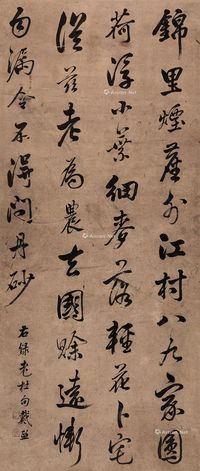 錦里煙塵外江村八九家圓
荷浮小葉細麥落輕花卜宅
從茲老為農去國賒遠慚
勾漏令不得問丹砂
右錄老杜